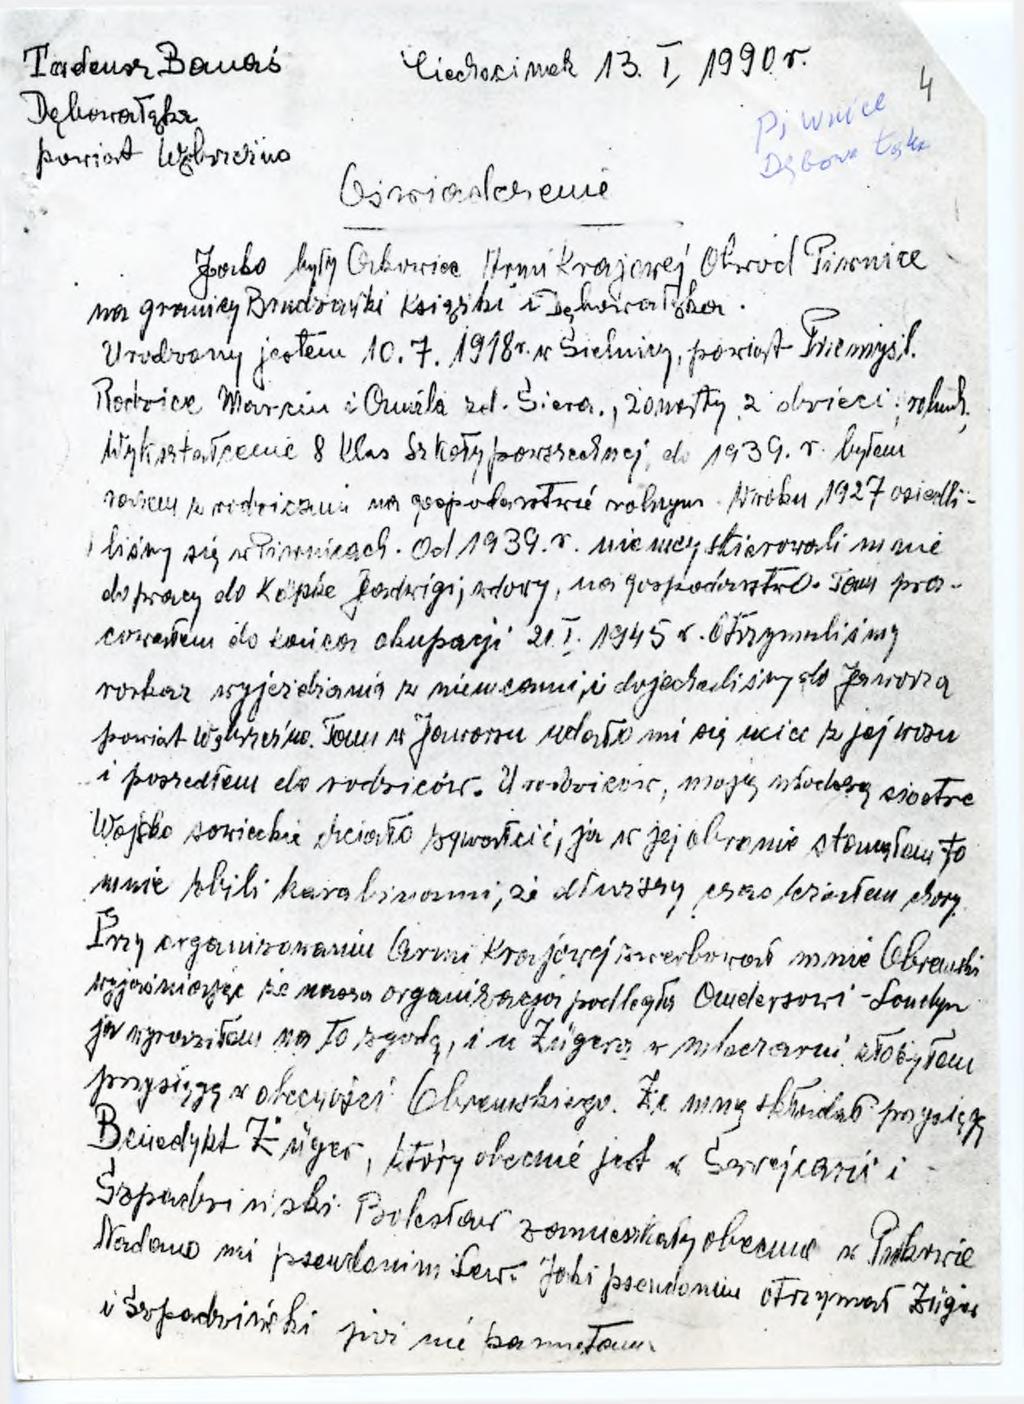 Tadeusz Banaś Ciechocinek 13. I, 1990 r.
4
Dębowałąka
powiat Wąbrzeźno
Piwnice
Dębowa Łąka
Oświadczenie
Jako były Członkowiec Armi Krajowej Obwód Piwnice
na granicy Brudzawki Książki i Dębowałąka.
Urodzony jestem 10. 7. 1918 r. w Sielnicy, powiat Przemyśl.
Rodzice Marcin i Aniela zd. Siera., żonaty 2 dzieci, rolnik,
Wykształcenie 8 klas Szkoły powszechnej, do 1939. r. byłem
razem z rodzicami na gospodarstwie rolnym. W roku 1927 osiedli-
liśmy się w Piwnicach. Od 1939. r. niemcy skierowali mnie
do pracy do Köpke Jadwigi, wdowy, na gospodarstwo. Tam pra-
cowałem do końca okupacji 20. I. 1945 r. Otrzymaliśmy
rozkaz wyjeżdżania z niemcami, i dojechaliśmy do Jaworza
powiat Wąbrzeźno. Tam w Jaworzu udało mi się uciec z jej wozu
i poszedłem do rodziców. U rodziców, moją młodszą siostrę
Wojsko sowieckie chciało zgwałcić, ja w jej obronie stanąłem to
mnie zbili karabinami, że dłuższy czas leżałem chory.
Przy organizowaniu Armi Krajowej zwerbował mnie Obremski
wyjaśniając że nasza organizacja podlega Andersowi - Londyn
ja wyraziłem na to zgodę, i u Zügera w mleczarni złożyłem
przysięgę w obecności Obremskiego. Ze mną składał przysięgę
Benedykt Züger, który obecnie jest w Szwejcarii i
Szpadziński Bolesław zamieszkały obecnie w
Nadano mi pseudonim Lew. Jaki pseudonim otrzymał Züger
i Szpadziński już nie pamiętam